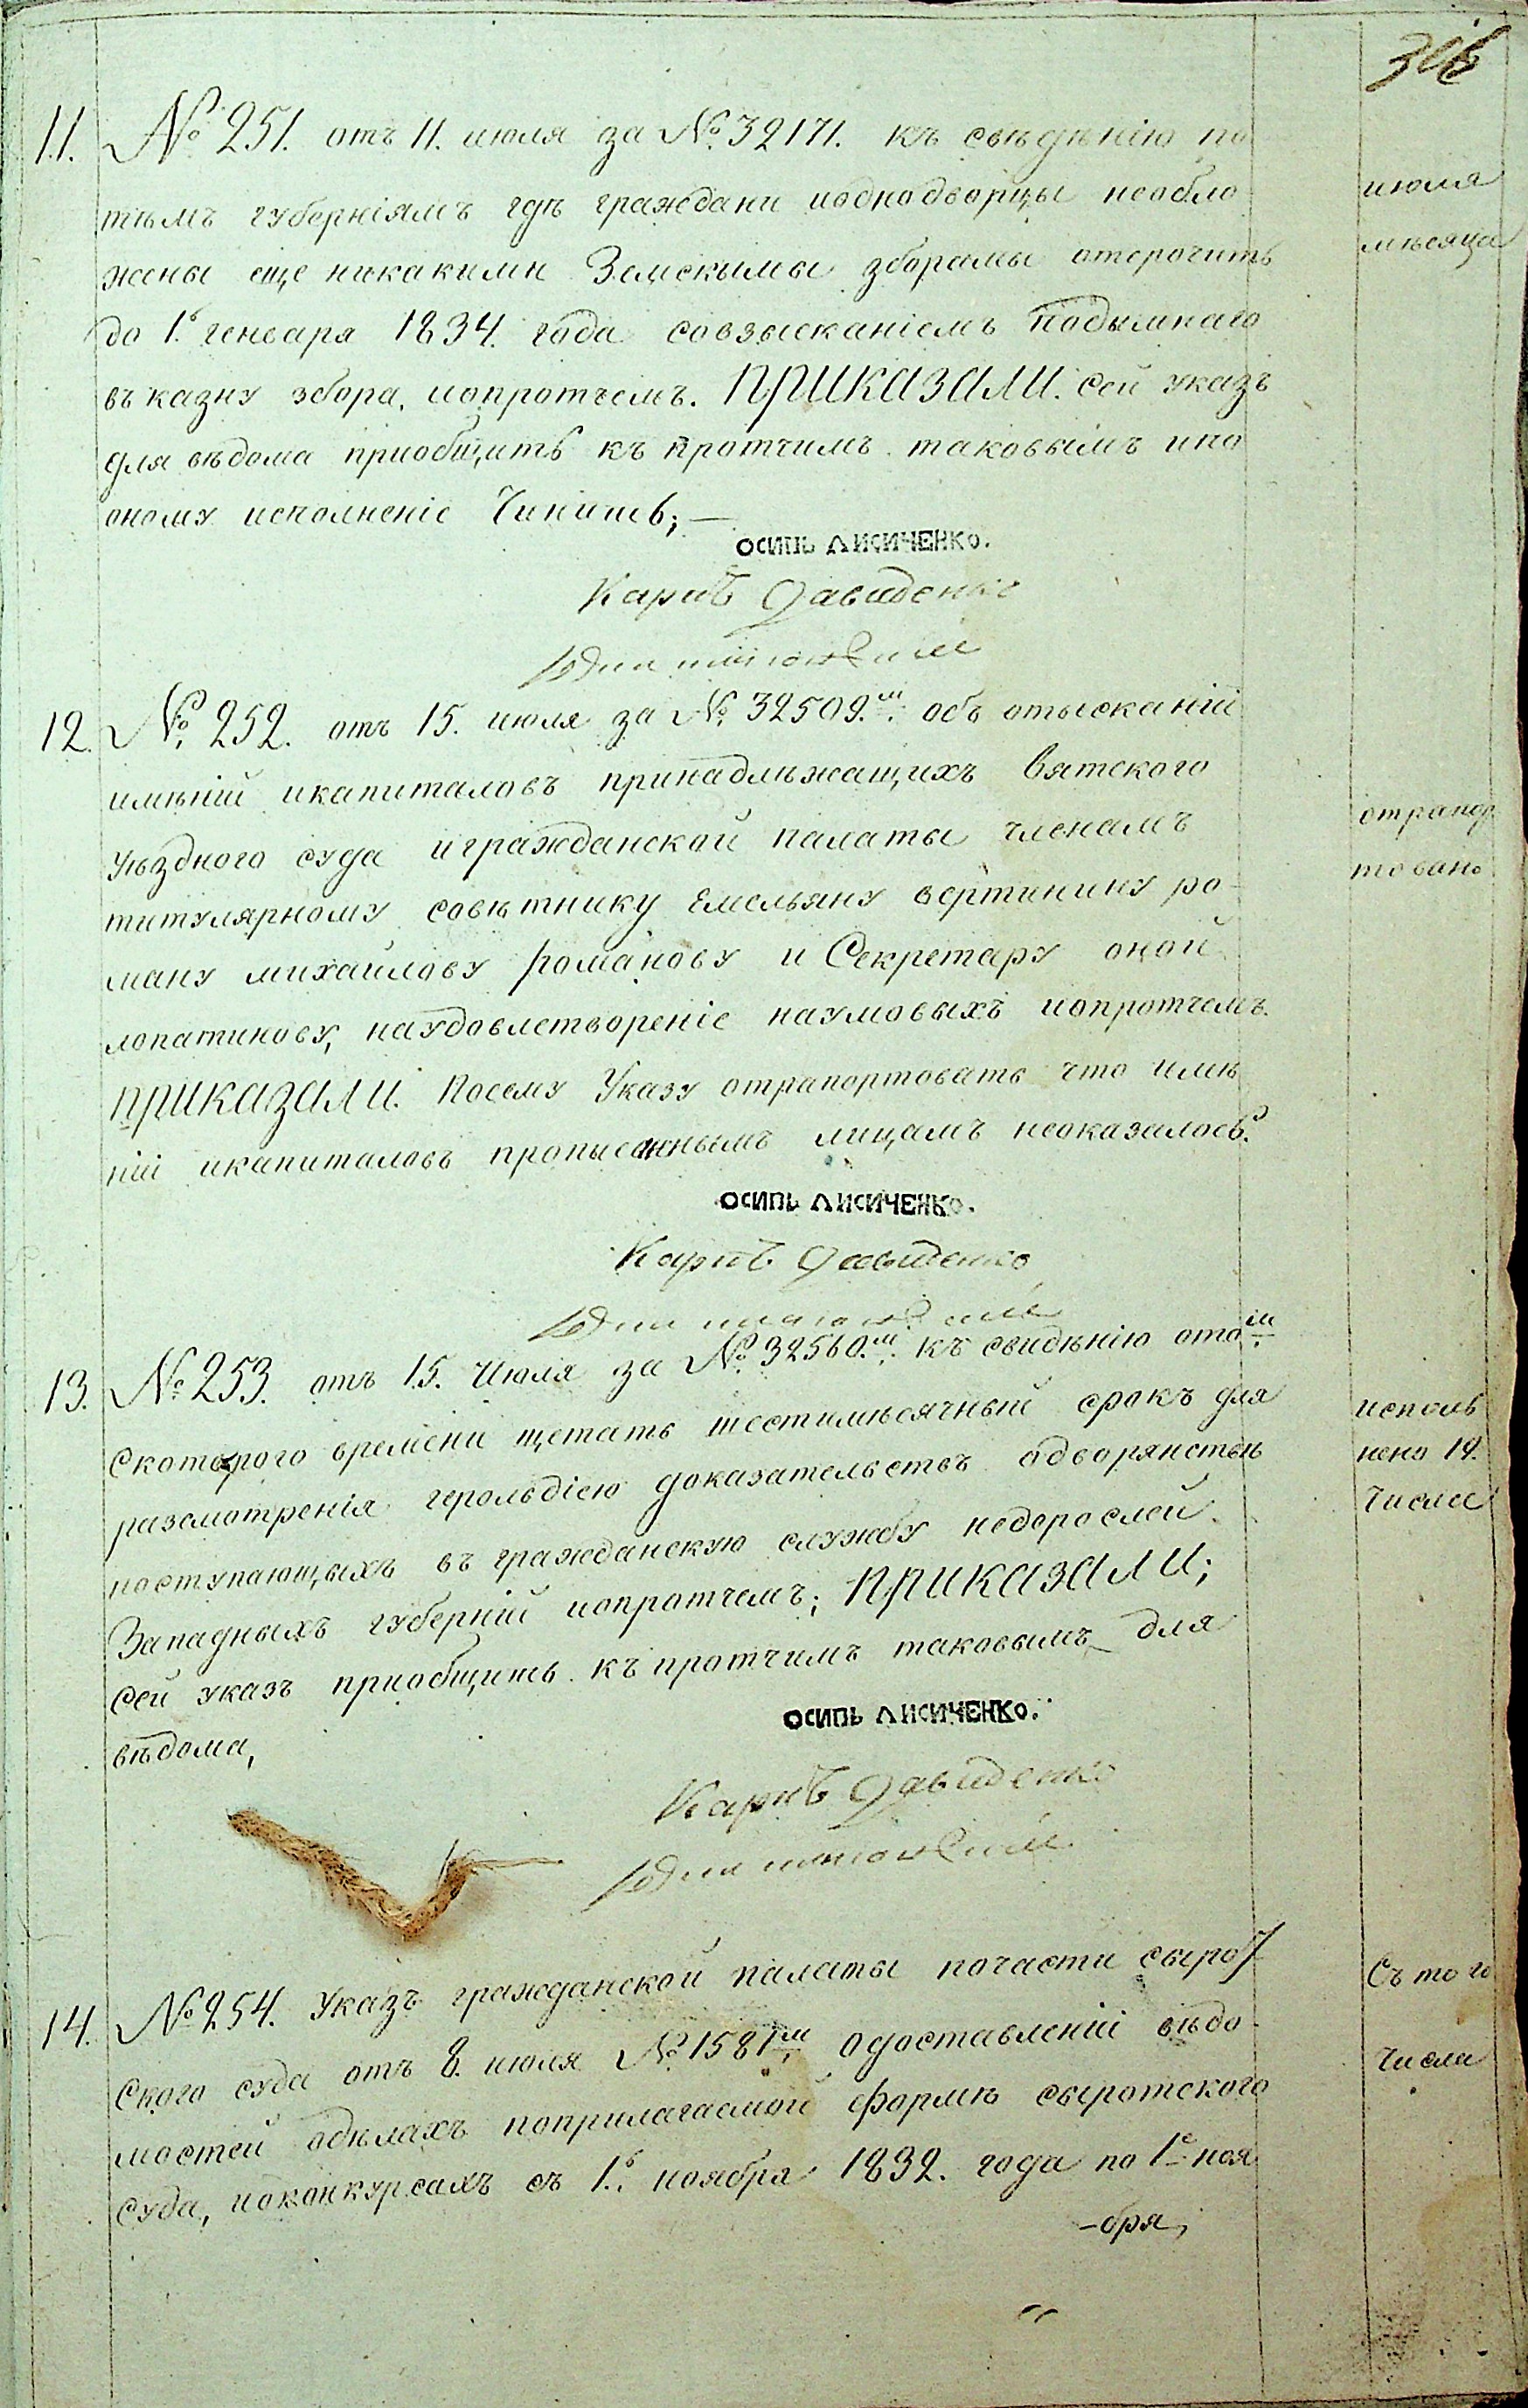 11. № 251. отъ 11. июля за № 32171. къ свѣдѣнію по
тѣмъ губерніямъ гдѣ граждани иоднодворцы необло
июля
жены еще никакими Земскымы зборамы отсрочить
мѣсяца
до 1.го генваря 1834. года совзысканіемъ подымнаго
въ казну збора, иопротчемъ. приказали. сей указъ
для вѣдома приобщить къ протчимъ таковымъ ипо
оному исполненіе Чинить; —
ОСИПЬ ЛИСИЧЕНКО.
Карпъ Давиденко
12. № 252. отъ 15. июля за № 32509.мъ объ отысканіи
имѣній икапиталовъ принадлѣжащихъ вятского
уѣздного суда игражданской палаты членамъ
отрапор
титулярному совѣтнику Емельяну вертинину ро-
товано
ману михайлову романову и Секретару оной
лопатинову, наудовлетвореніе наумовыхъ иопротчемъ.
приказали. Посему Указу отрапортовать что имѣ
ніи икапиталовъ прописаннымъ лицамъ неоказалось.
ОСИПЬ ЛИСИЧЕНКО.
Карпъ Давиденко
13. № 253. отъ 15. Июля за № 32560.мъ къ свидѣнію отомъ
Скоторого времени щетать шестимѣсячный срокъ для
исполь
разсмотренія герольдіею доказательствъ одворянствѣ
нено 19.
поступающыхъ въ гражданскую службу недорослей
Числа
Западныхъ губерній иопротчемъ; приказали;
Сей указъ приобщить къ протчимъ таковымъ для
вѣдома,
ОСИПЬ ЛИСИЧЕНКО.
Карпъ Давиденко
14. № 254. Указъ гражданской палаты почасти сырот
Съ того
Ского суда отъ 8. июля № 1581мъ одоставленіи вѣдо-
Числа
мостей одѣлахъ поприлагаемой формѣ сыротского
суда, иоконкурсахъ съ 1.го ноября 1832. года по 1е ноя
-бря,